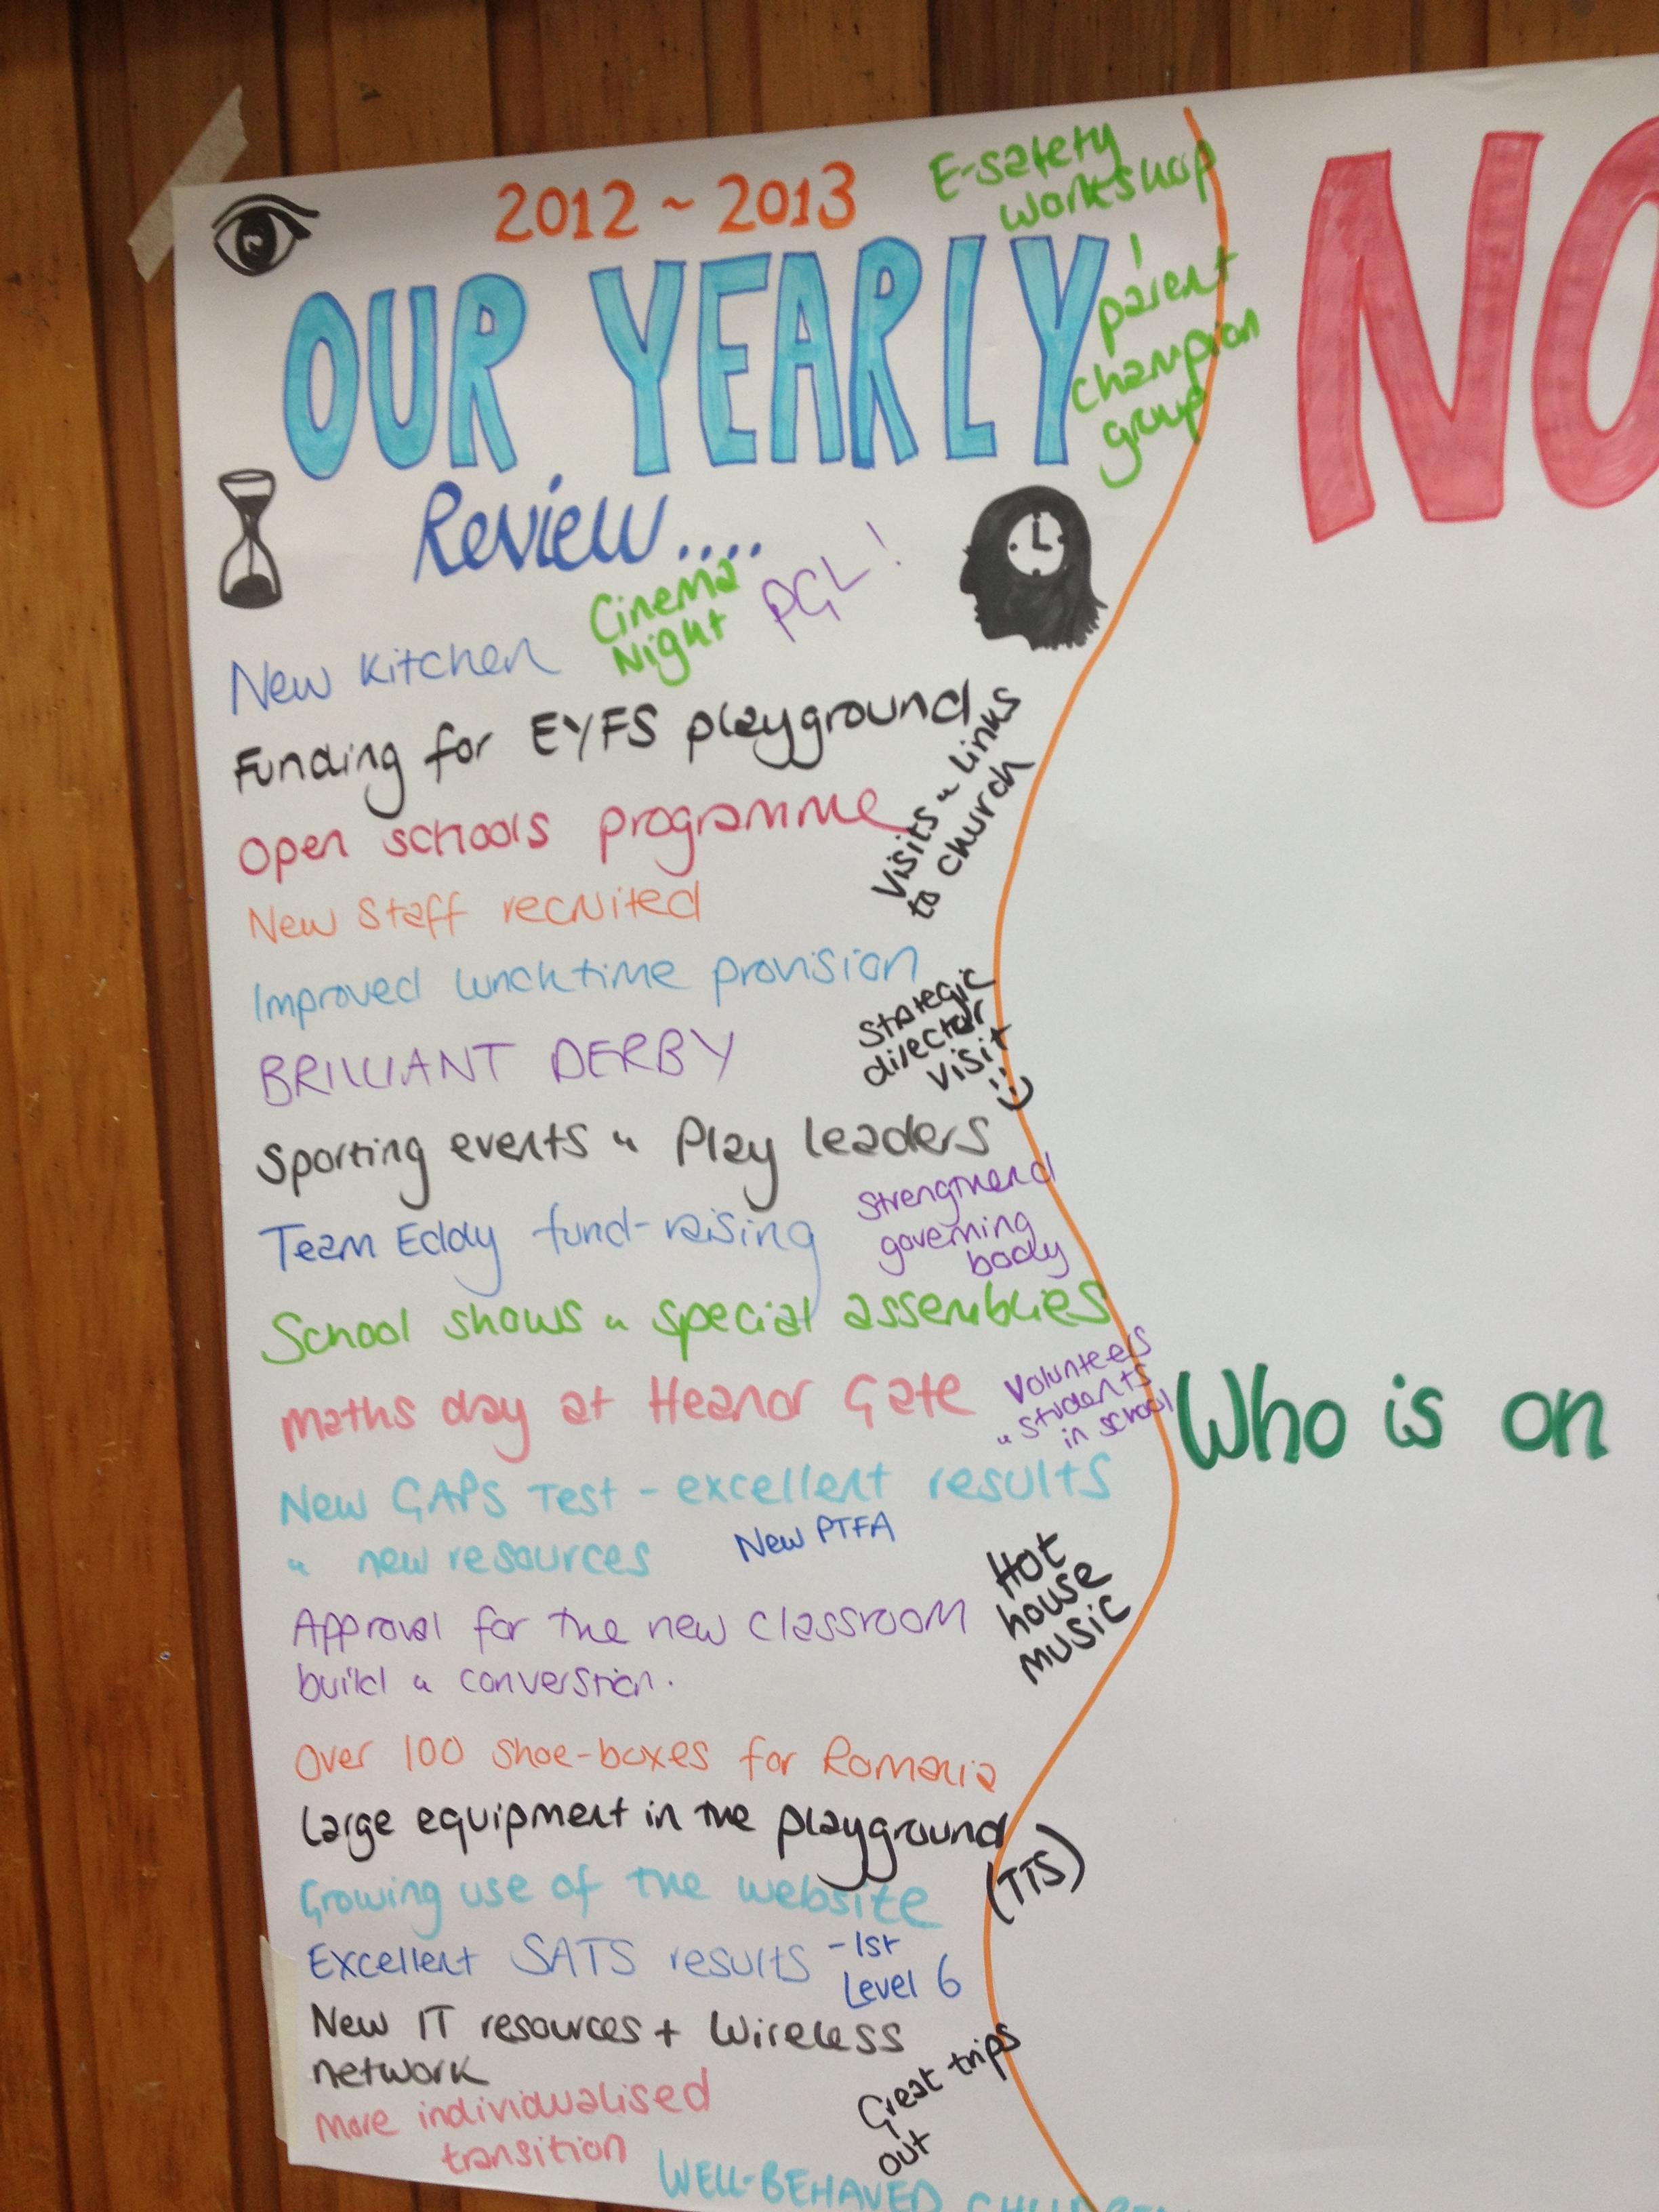 2012 ~ 2013
E-safety
workshop
OUR YEARLY
Review....
parent
champion
group
NO
Cinema
Night
PGL!
New kitchen
Funding for EYFS playground
Visits & links
to church
Open schools programme
New Staff recruited
Improved lunchtime provision
Strategic
director
visit
BRILLIANT DERBY
Sporting events & Play leaders
Team Eddy fund-raising
Strengthend
governing
body
School shows & special assemblies
Maths day at Heanor Gate
Volunteers
& students
in school
Who is on
New GAPS Test - excellent results
& new resources
New PTFA
Hot
house
music
Approval for the new classroom
build & converstion.
Over 100 shoe-boxes for Romania
Large equipment in the playground
(TTS)
Growing use of the website
Excellent SATS results - 1st
Level 6
New IT resources + Wireless
network
Great trips
out
More individualised
transition
WELL-BEHAVED CHILDREN